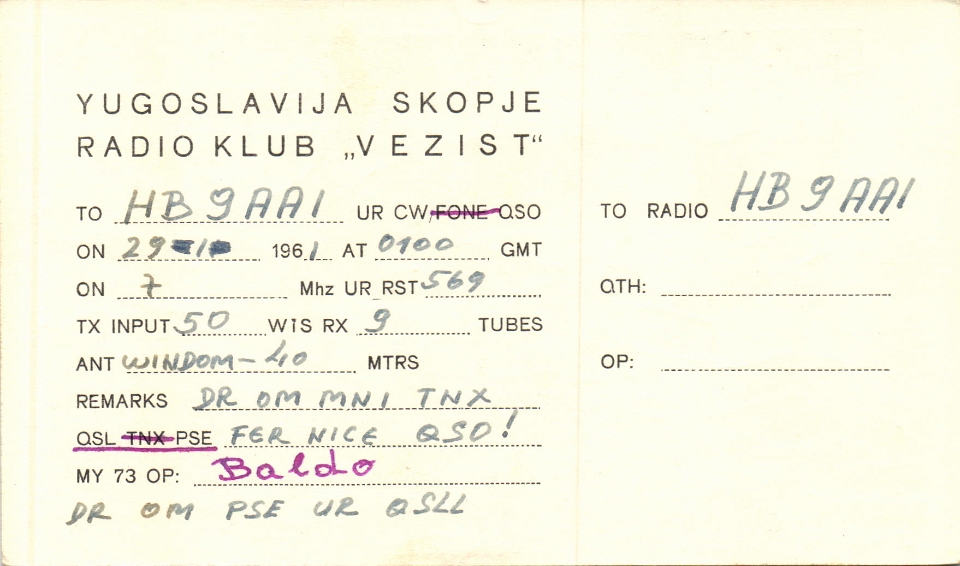 YUGOSLAVIJA SKOPJE
RADIO KLUB „VEZIST“
TO HB9AAI UR CW FONE QSO
ON 29 1 1961 AT 0100 GMT
ON 7 Mhz UR RST 569
TX INPUT 50 WTS RX 9 TUBES
ANT WINDOM-40 MTRS
REMARKS DR OM MNI TNX
QSL TNX PSE FER NICE QSO!
MY 73 OP: Baldo
DR OM PSE UR QSLL
TO RADIO HB9AAI
QTH:
OP: